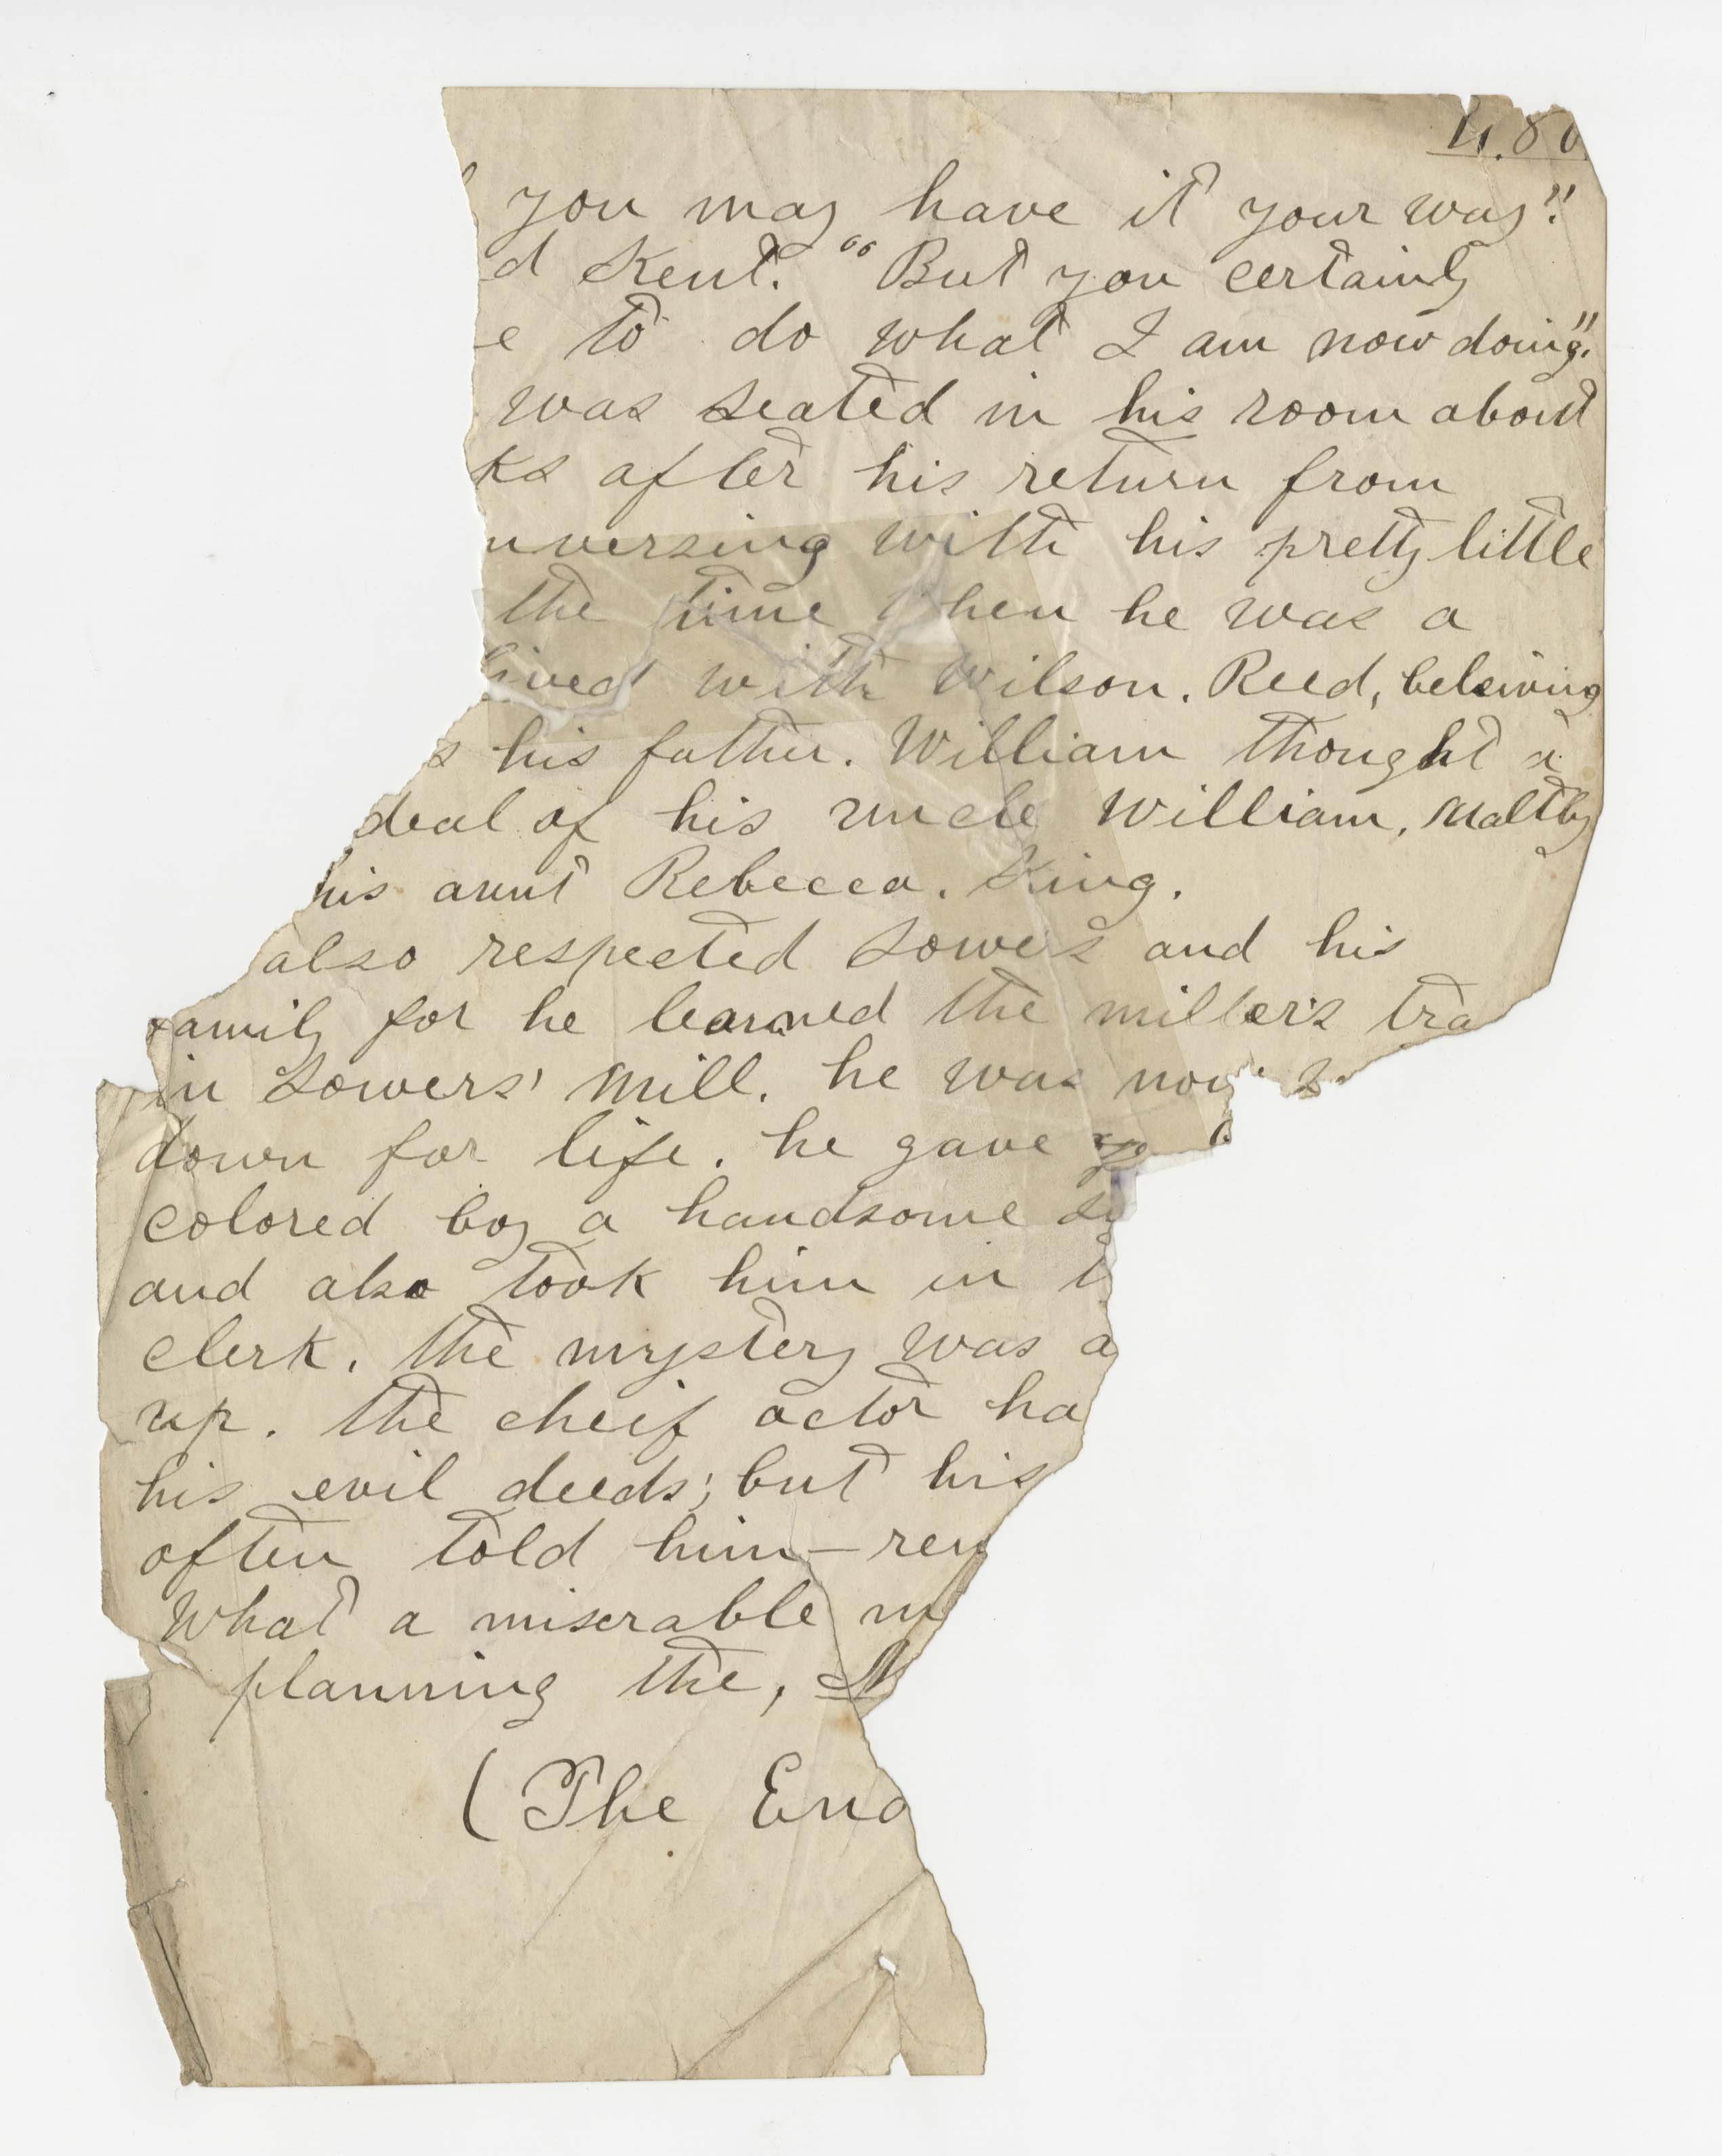 you may have it your way."
d Kent. "But you certainly
e to do what I am now doing."
was seated in his room about
ks after his return from
nversing with his pretty little
the time when he was a
lived with Wilson. Reed, beleiving
s his father. William thought a
deal of his uncle William. Maltby
his aunt Rebecca. King.
also respected Sowers and his
family for he learned the miller's tra
in Sowers' mill. he was now
down for life. he gave
colored boy a handsome
and also took him in
clerk. the mystery was a
up. the cheif actor ha
his evil deeds; but his
often told him—
What a miserable
planning the,
(The End